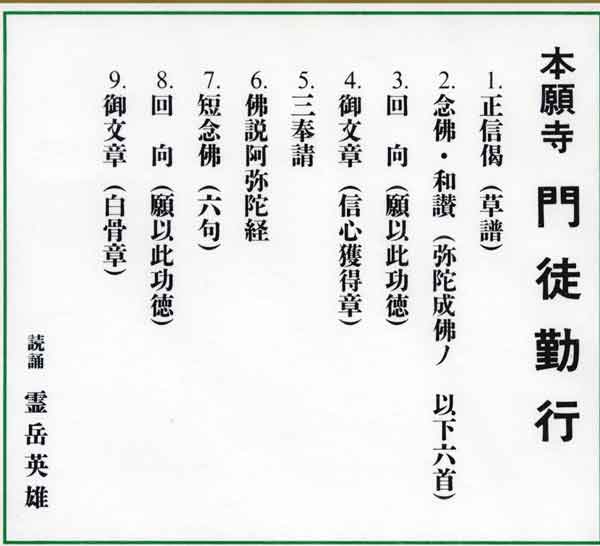 本願寺 門徒勤行
1. 正信偈（草譜）
2. 念佛・和讃（弥陀成佛ノ 以下六首）
3. 回 向（願以此功徳）
4. 御文章（信心獲得章）
5. 三奉請
6. 佛説阿弥陀経
7. 短念佛（六句）
8. 回 向（願以此功徳）
9. 御文章（白骨章）
読誦 霊岳英雄